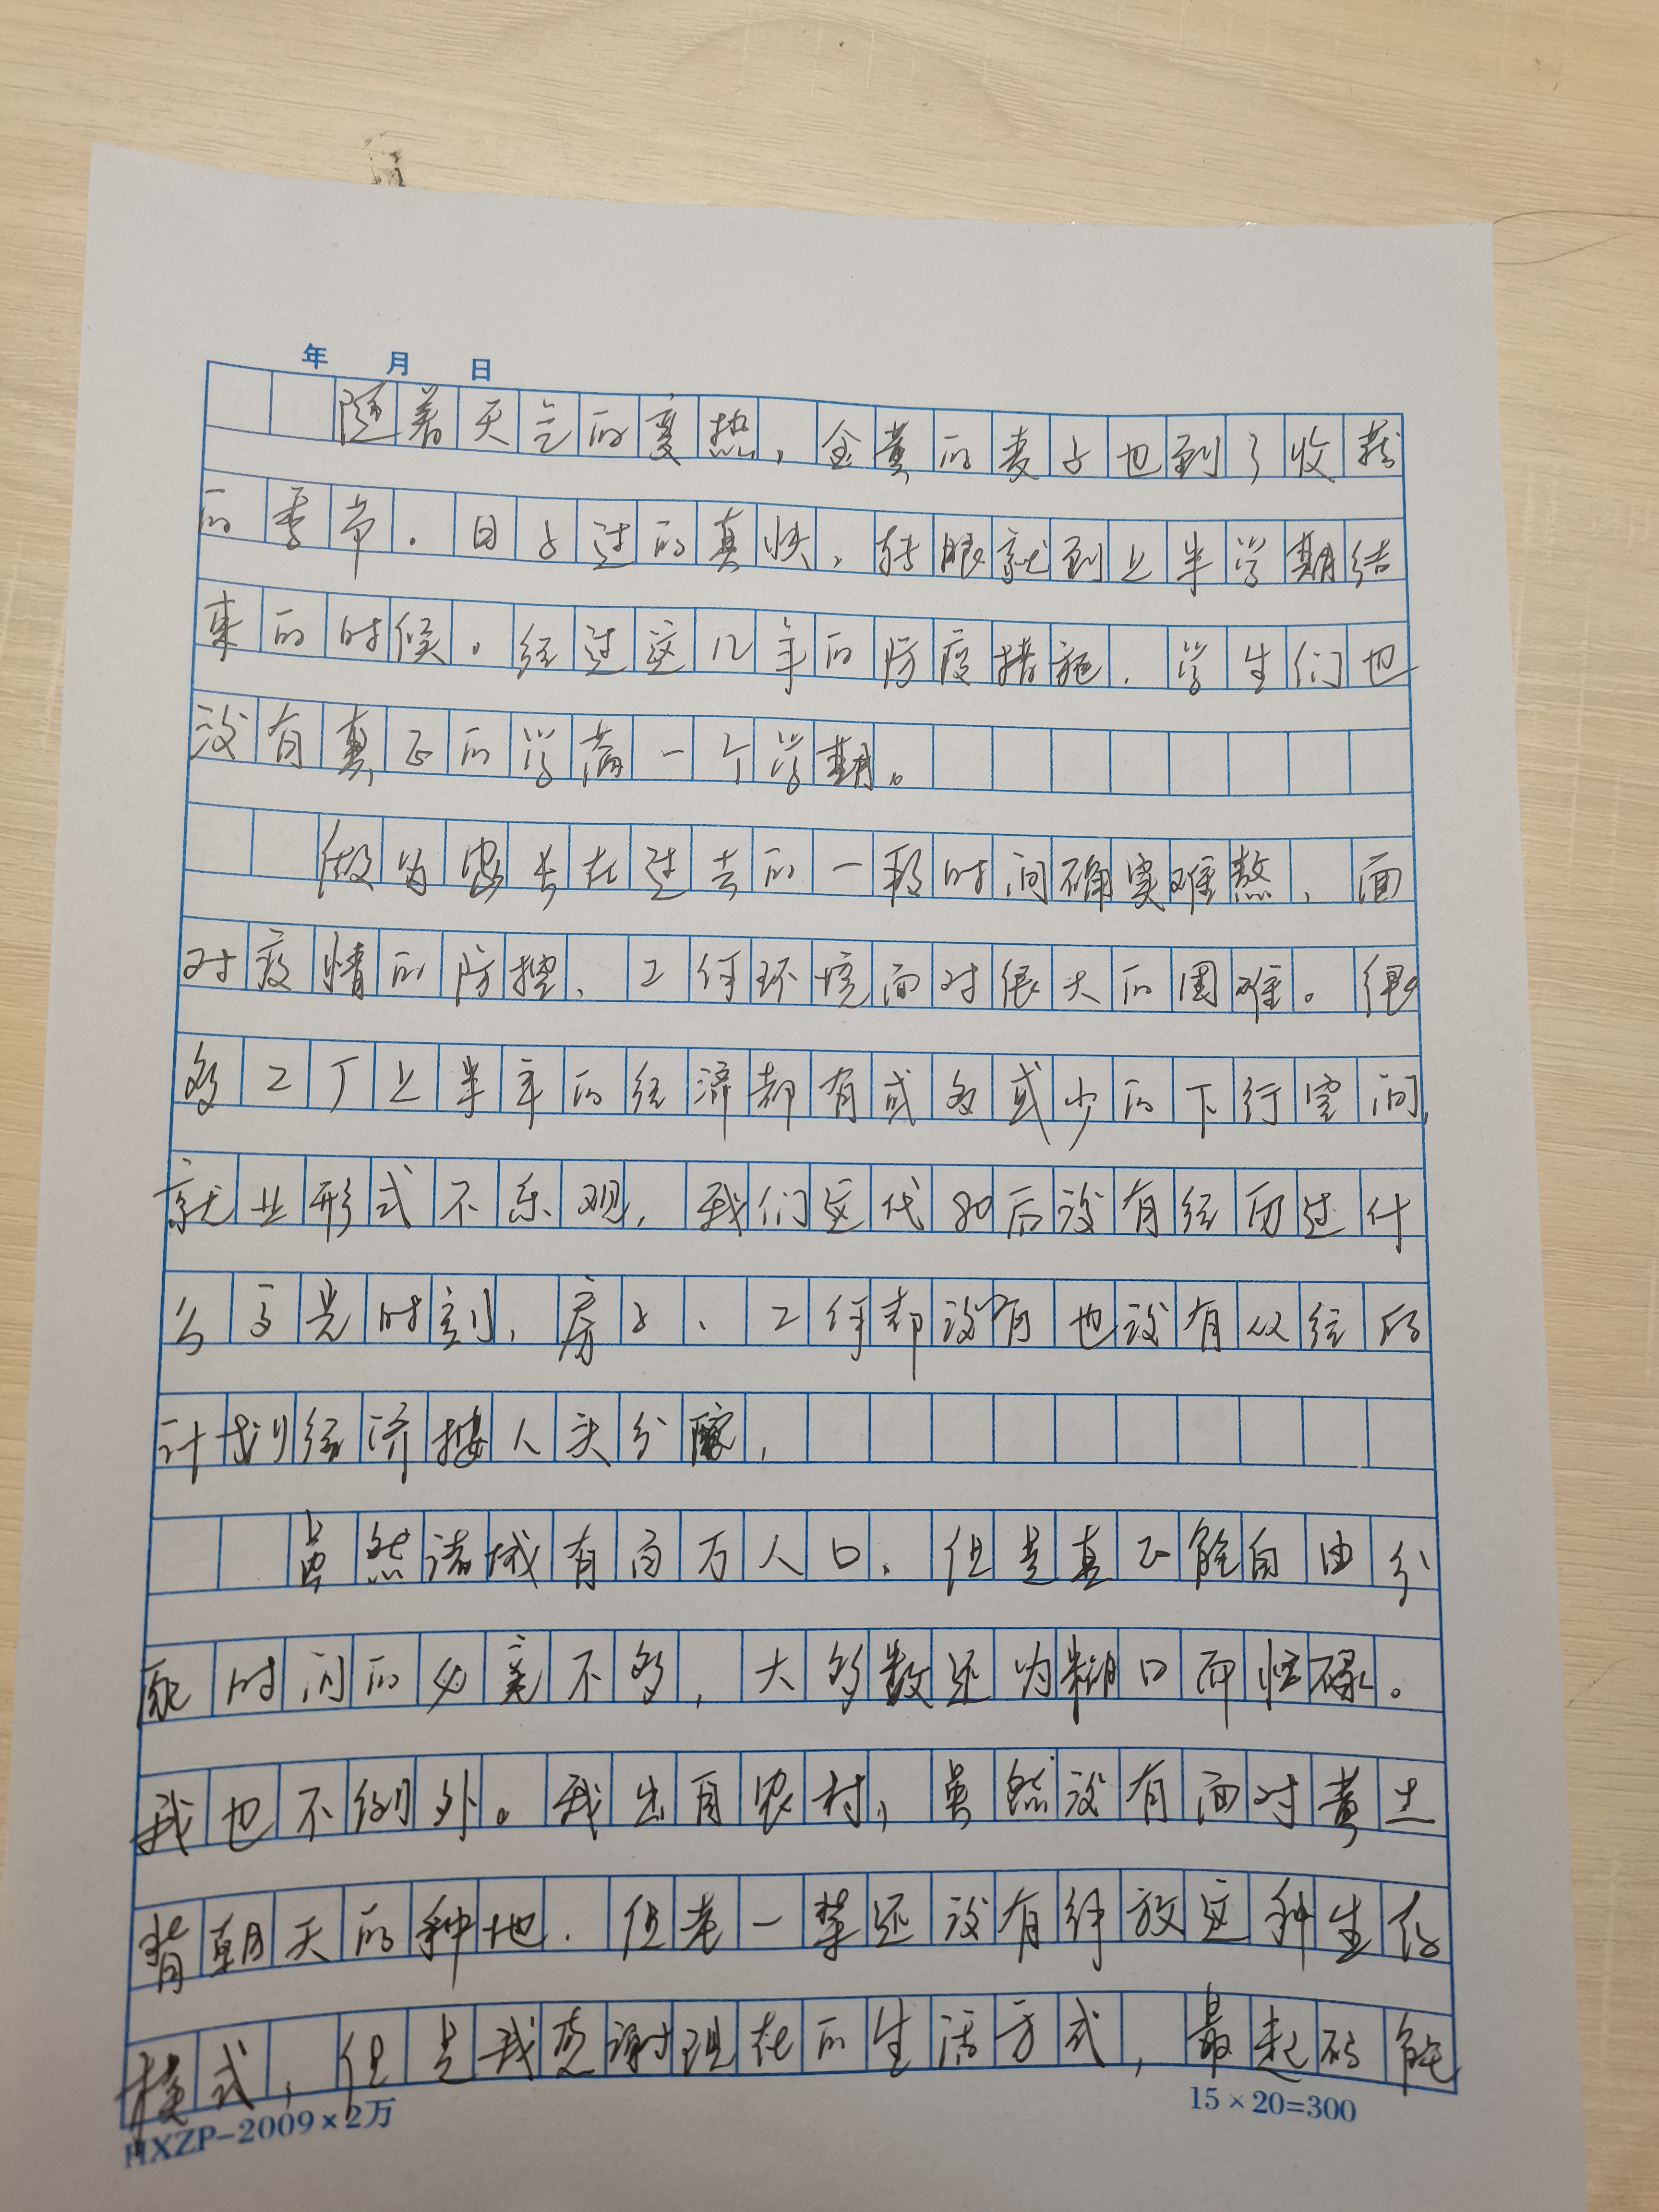 年 月 日
随着天气的变热，金黄的麦子也到了收获
的季节．日子过的真快，转眼就到上半学期结
束的时候。经过这几年的防疫措施．学生们也
没有真正的学满一个学期。
做为家长在过去的一段时间确实难熬，面
对疫情的防控、工作环境面对很大的困难。很
多工厂上半年的经济都有或多或少的下行空间，
就业形式不乐观，我们这代80后没有经历过什
么高光时刻，房子、工作都没有也没有以往的
计划经济按人头分配，
虽然诸城有百万人口，但是真正能自由分
配时间的必竟不多，大多数还为糊口而忙碌。
我也不例外。我出自农村，虽然没有面对黄土
背朝天的种地．但老一辈还没有释放这种生存
模式，但是我感谢现在的生活方式，最起码能
HXZP-2009×2万
15×20=300